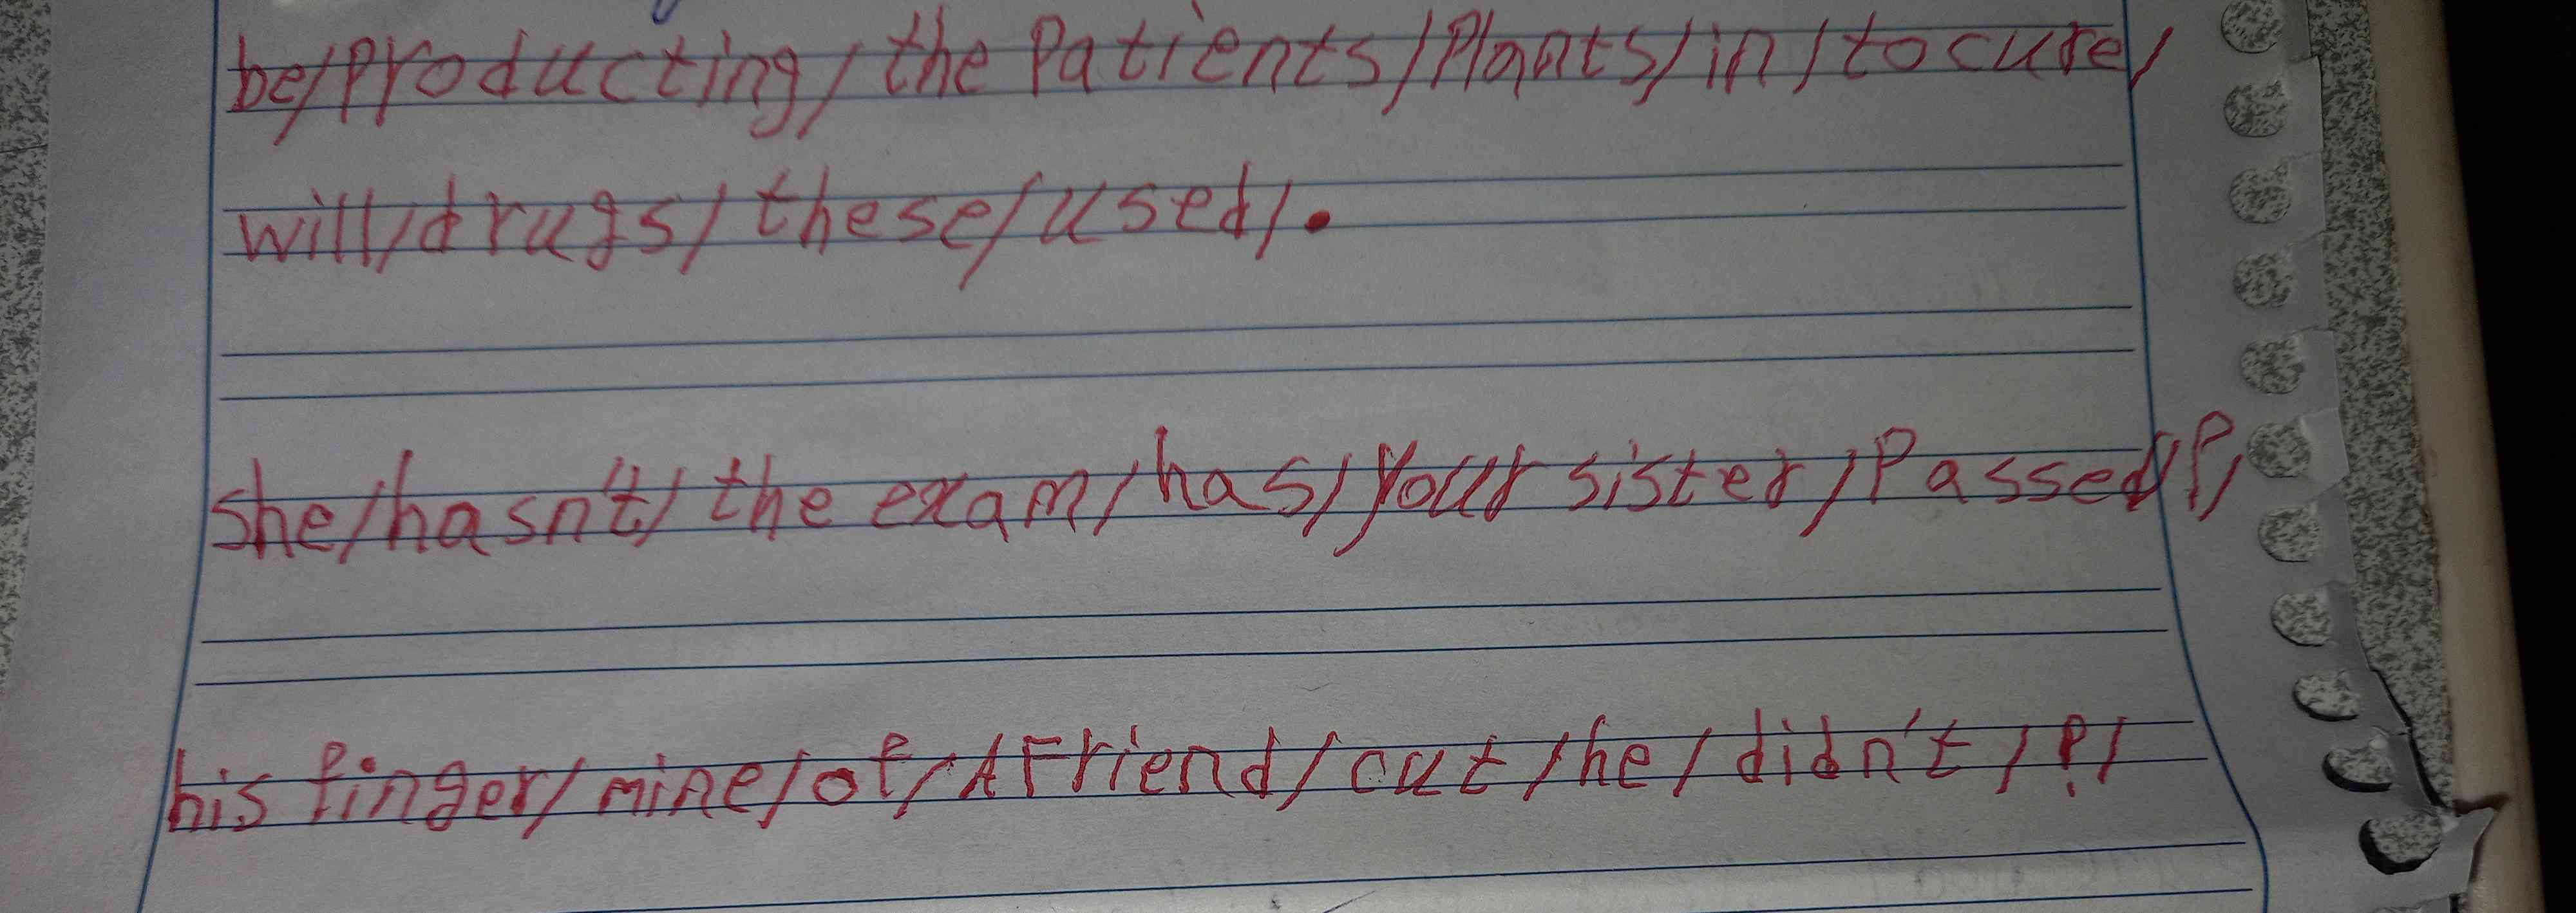 be/Producting/the Patients/Plants/in/to cure/
will/drugs/these/used/.
she/hasn't/the exam/has/your sister/Passed/?/
his finger/mine/of/A Friend/cut/he/didn't/?/